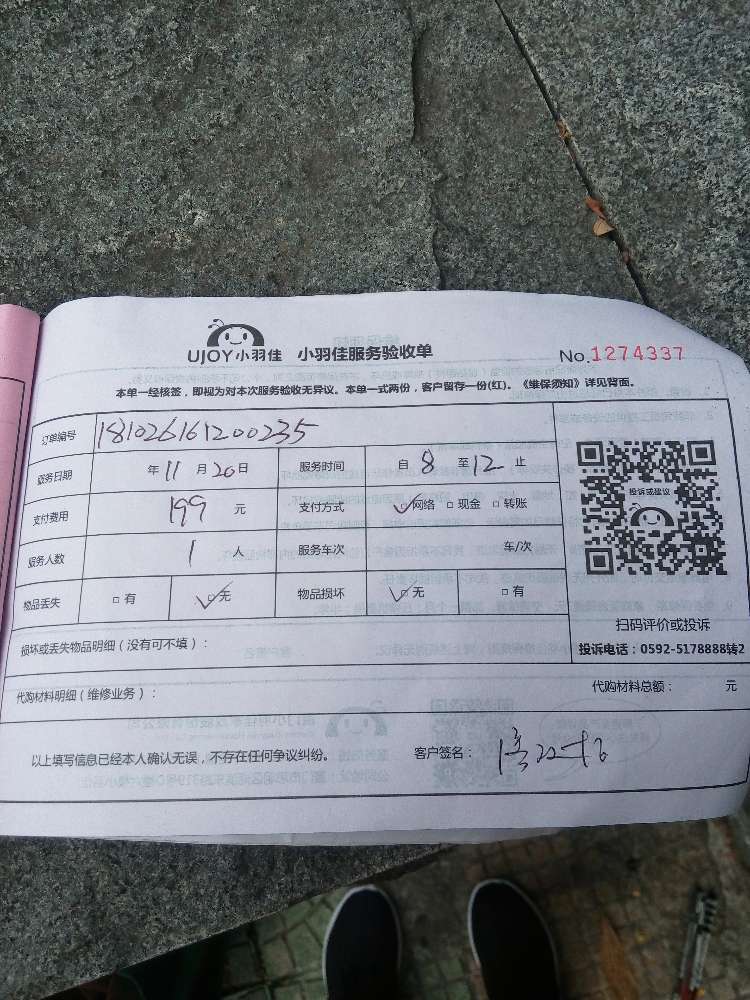 UJOY小羽佳 小羽佳服务验收单
No.1274337
本单一经核签，即视为对本次服务验收无异议。本单一式两份，客户留存一份(红)。《维保须知》详见背面。
订单编号 181026161200235
服务日期 年11月20日 服务时间 自8至12止
支付费用 199 元 支付方式 ☑网络 □现金 □转账
服务人数 1 人 服务车次 车/次
物品丢失 □有 ☑无 物品损坏 ☑无 □有
投诉或建议
扫码评价或投诉
投诉电话：0592-5178888转2
损坏或丢失物品明细（没有可不填）：
代购材料明细（维修业务）： 代购材料总额： 元
以上填写信息已经本人确认无误，不存在任何争议纠纷。 客户签名：